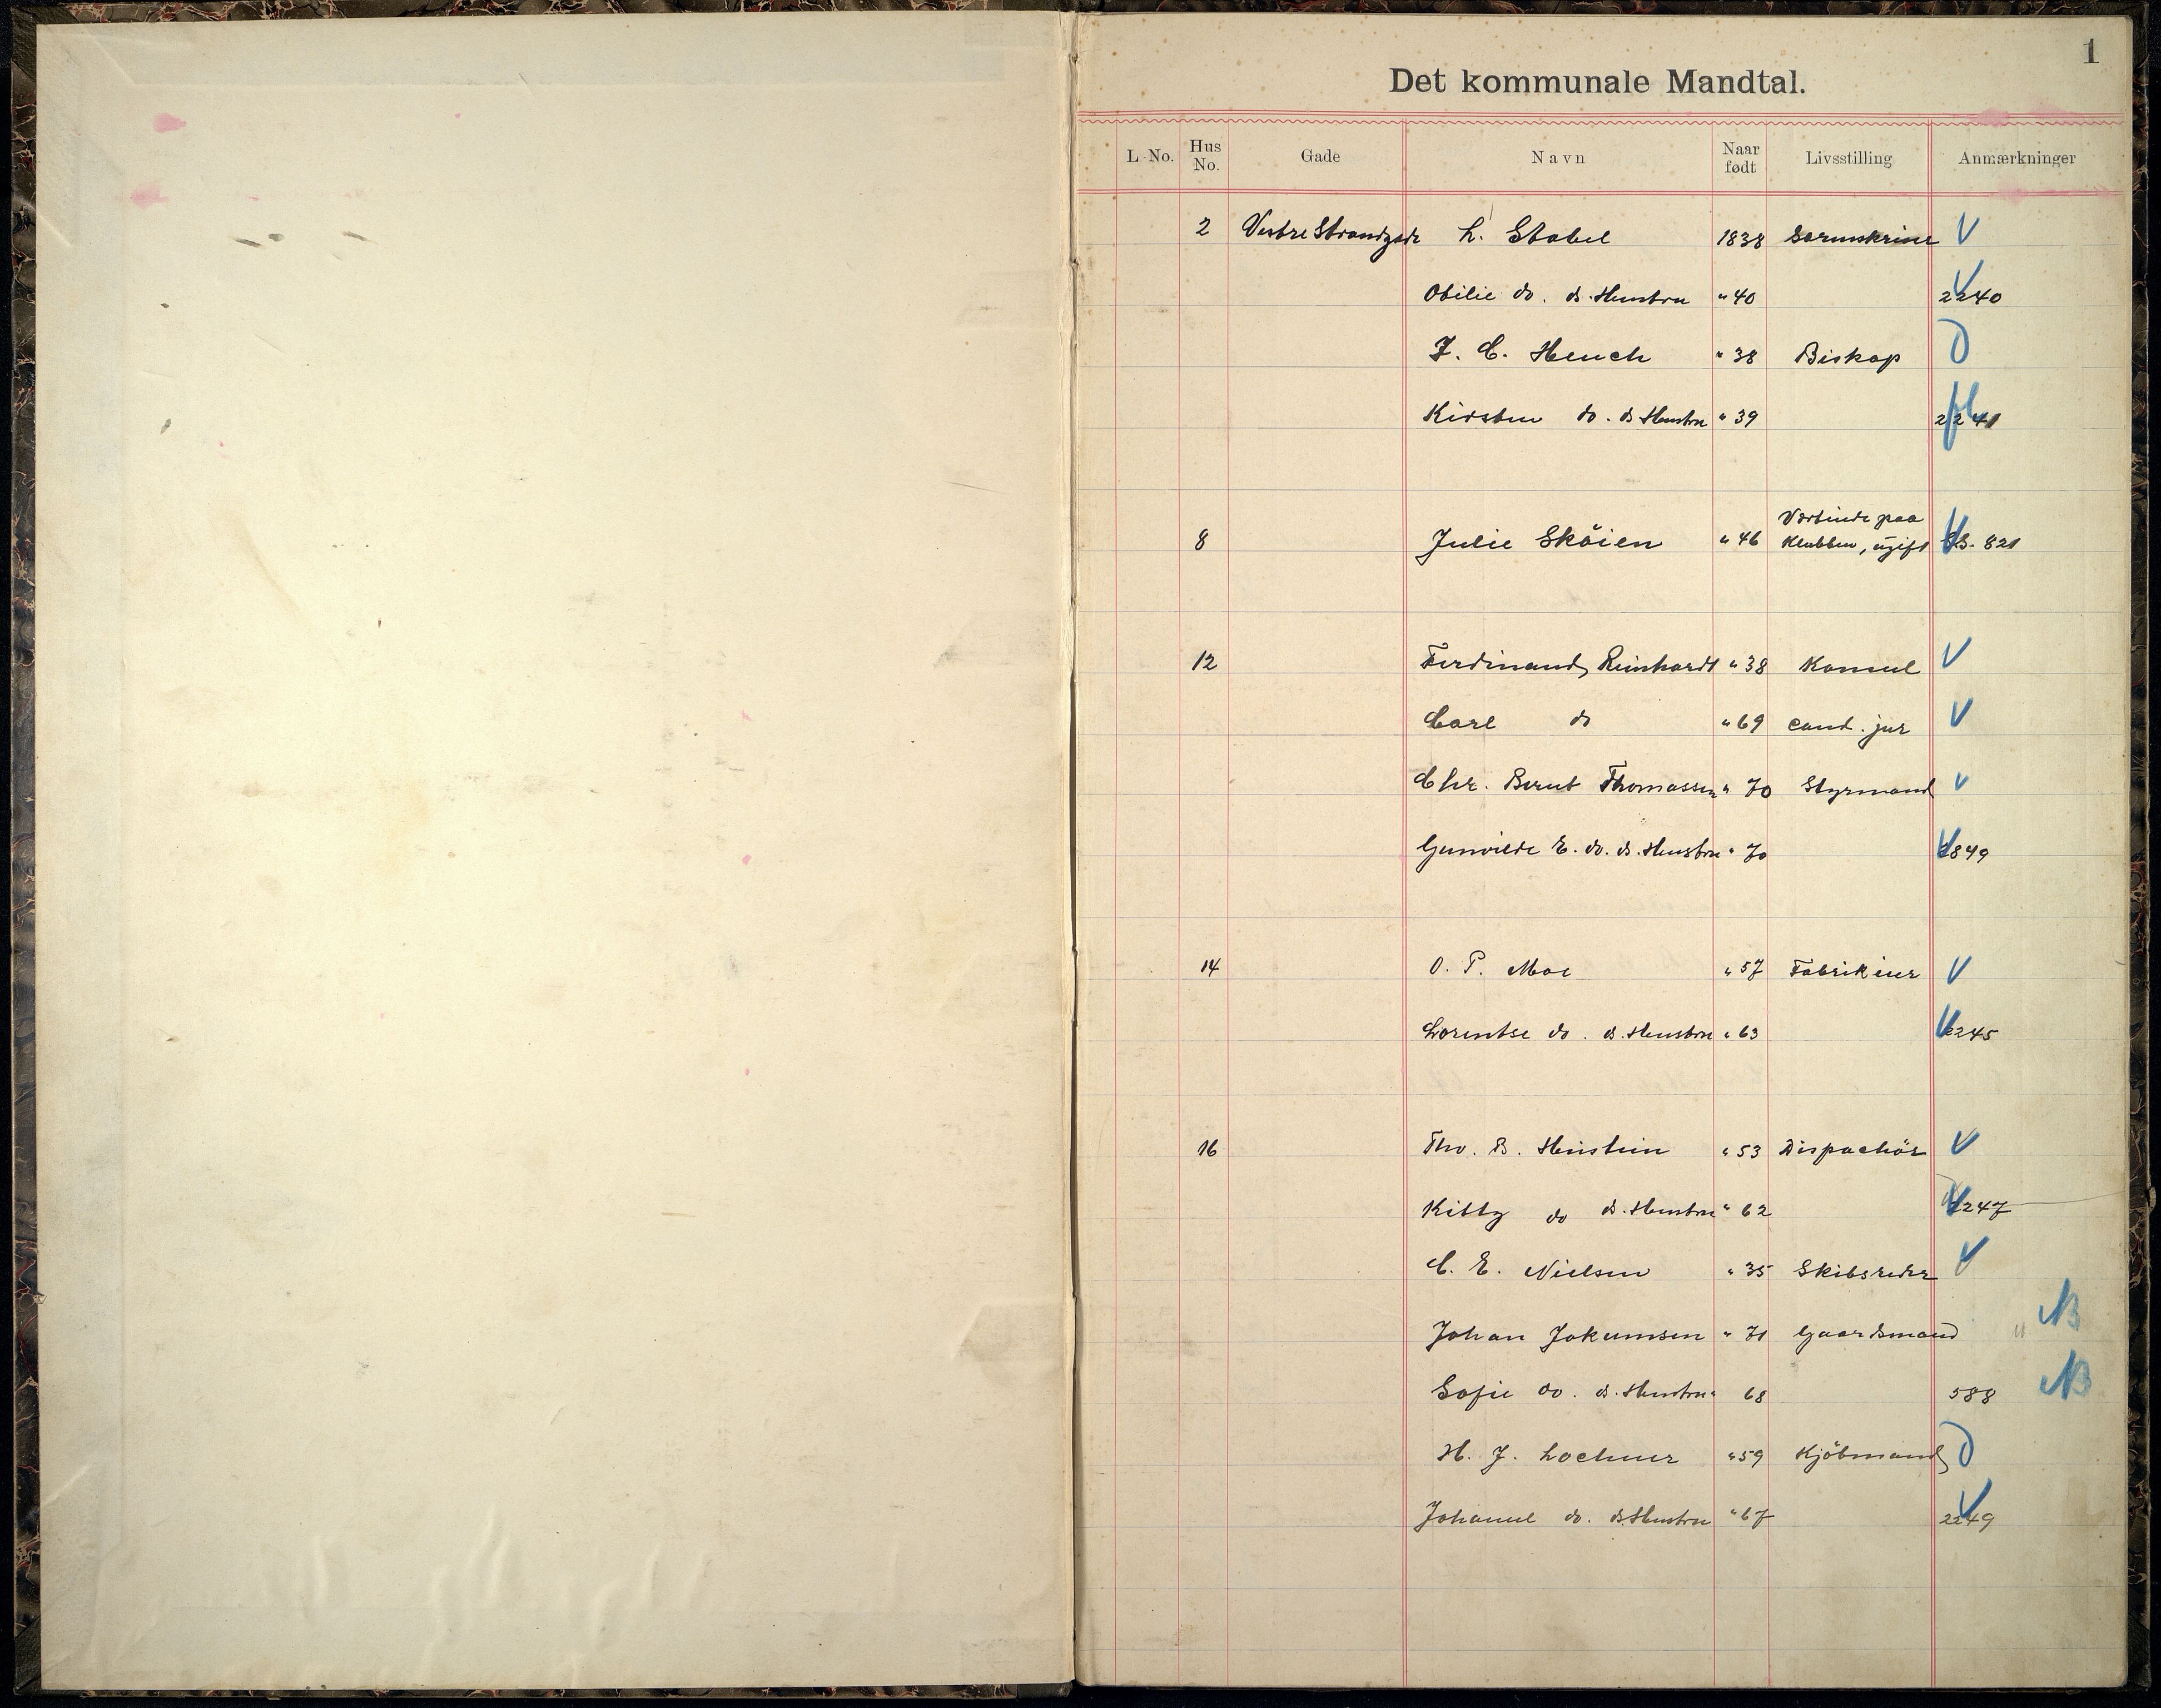 1
Det kommunale Mandtal.
L. No. Hus No. Gade Navn Naar født Livsstilling Anmærkninger
2 Vestre Strandgade L. Stabel 1838 Sorenskriver V
Otilie do. ds. Hustru " 40 2240 V
J. C. Heuch " 38 Biskop D
Kirsten do. ds Hustru " 39 2241
8 Julie Sköien " 46 Værtinde paa
Klubben, ugift V 821
12 Ferdinand Reinhardt " 38 Konsul V
Carl do " 69 cand. jur V
Chr. Bernt Thomassen " 70 Styrmand V
Gunvilde E. do. ds. Hustru " 70 V 849
14 O. P. Moe " 57 Fabrikeier V
Lorentse do. ds. Hustru " 63 V 2245
16 Tho. B. Heistein " 53 Dispachör V
Kitty do ds. Hustru " 62 V 2247
C. E. Nielsen " 35 Skibsreder V
Johan Jokumsen " 71 Gaardsmand NB
Sofie do. ds. Hustru " 68 588 NB
H. J. Lochner " 59 Kjöbmand D
Johanne do. ds Hustru " 67 2249 V